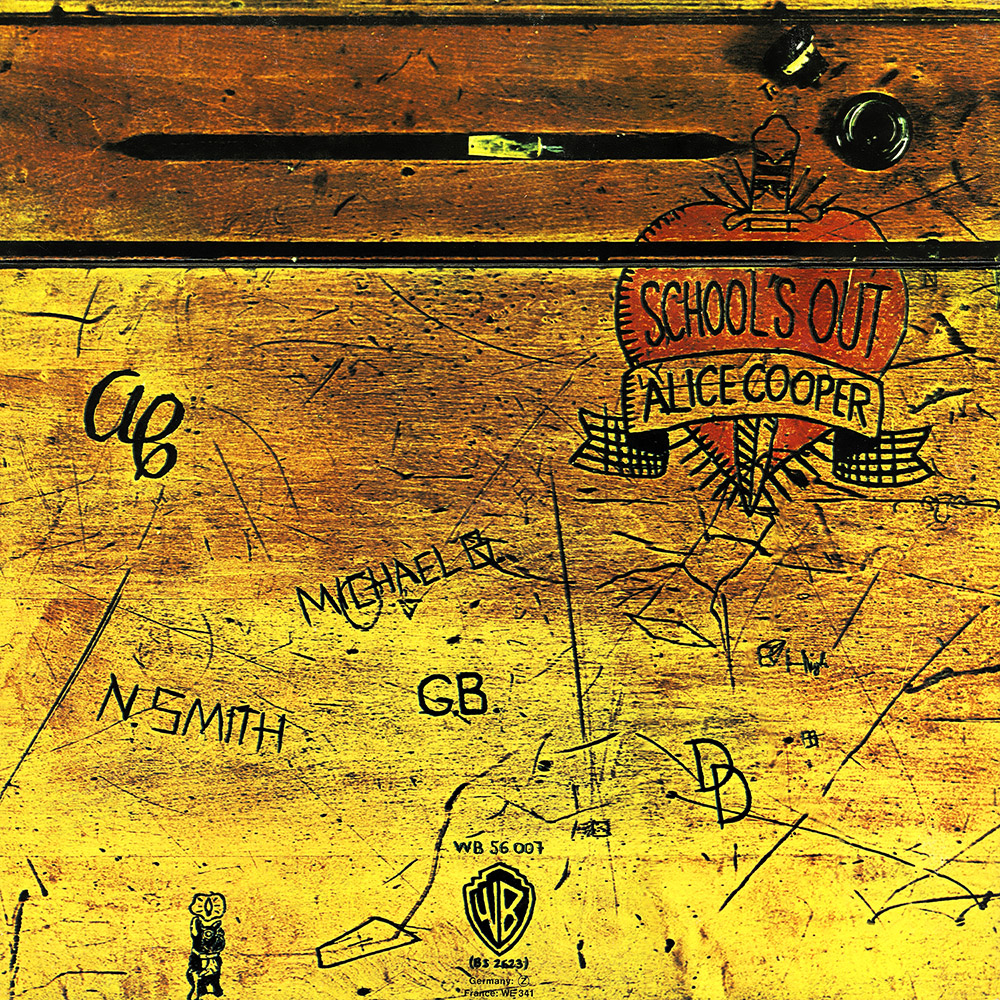 SCHOOL'S OUT
ALICE COOPER
ac
MICHAEL B
N. SMITH
G.B.
DD
WB 56 007
WB
(BS 2623)
Germany: Z
France: WE 341